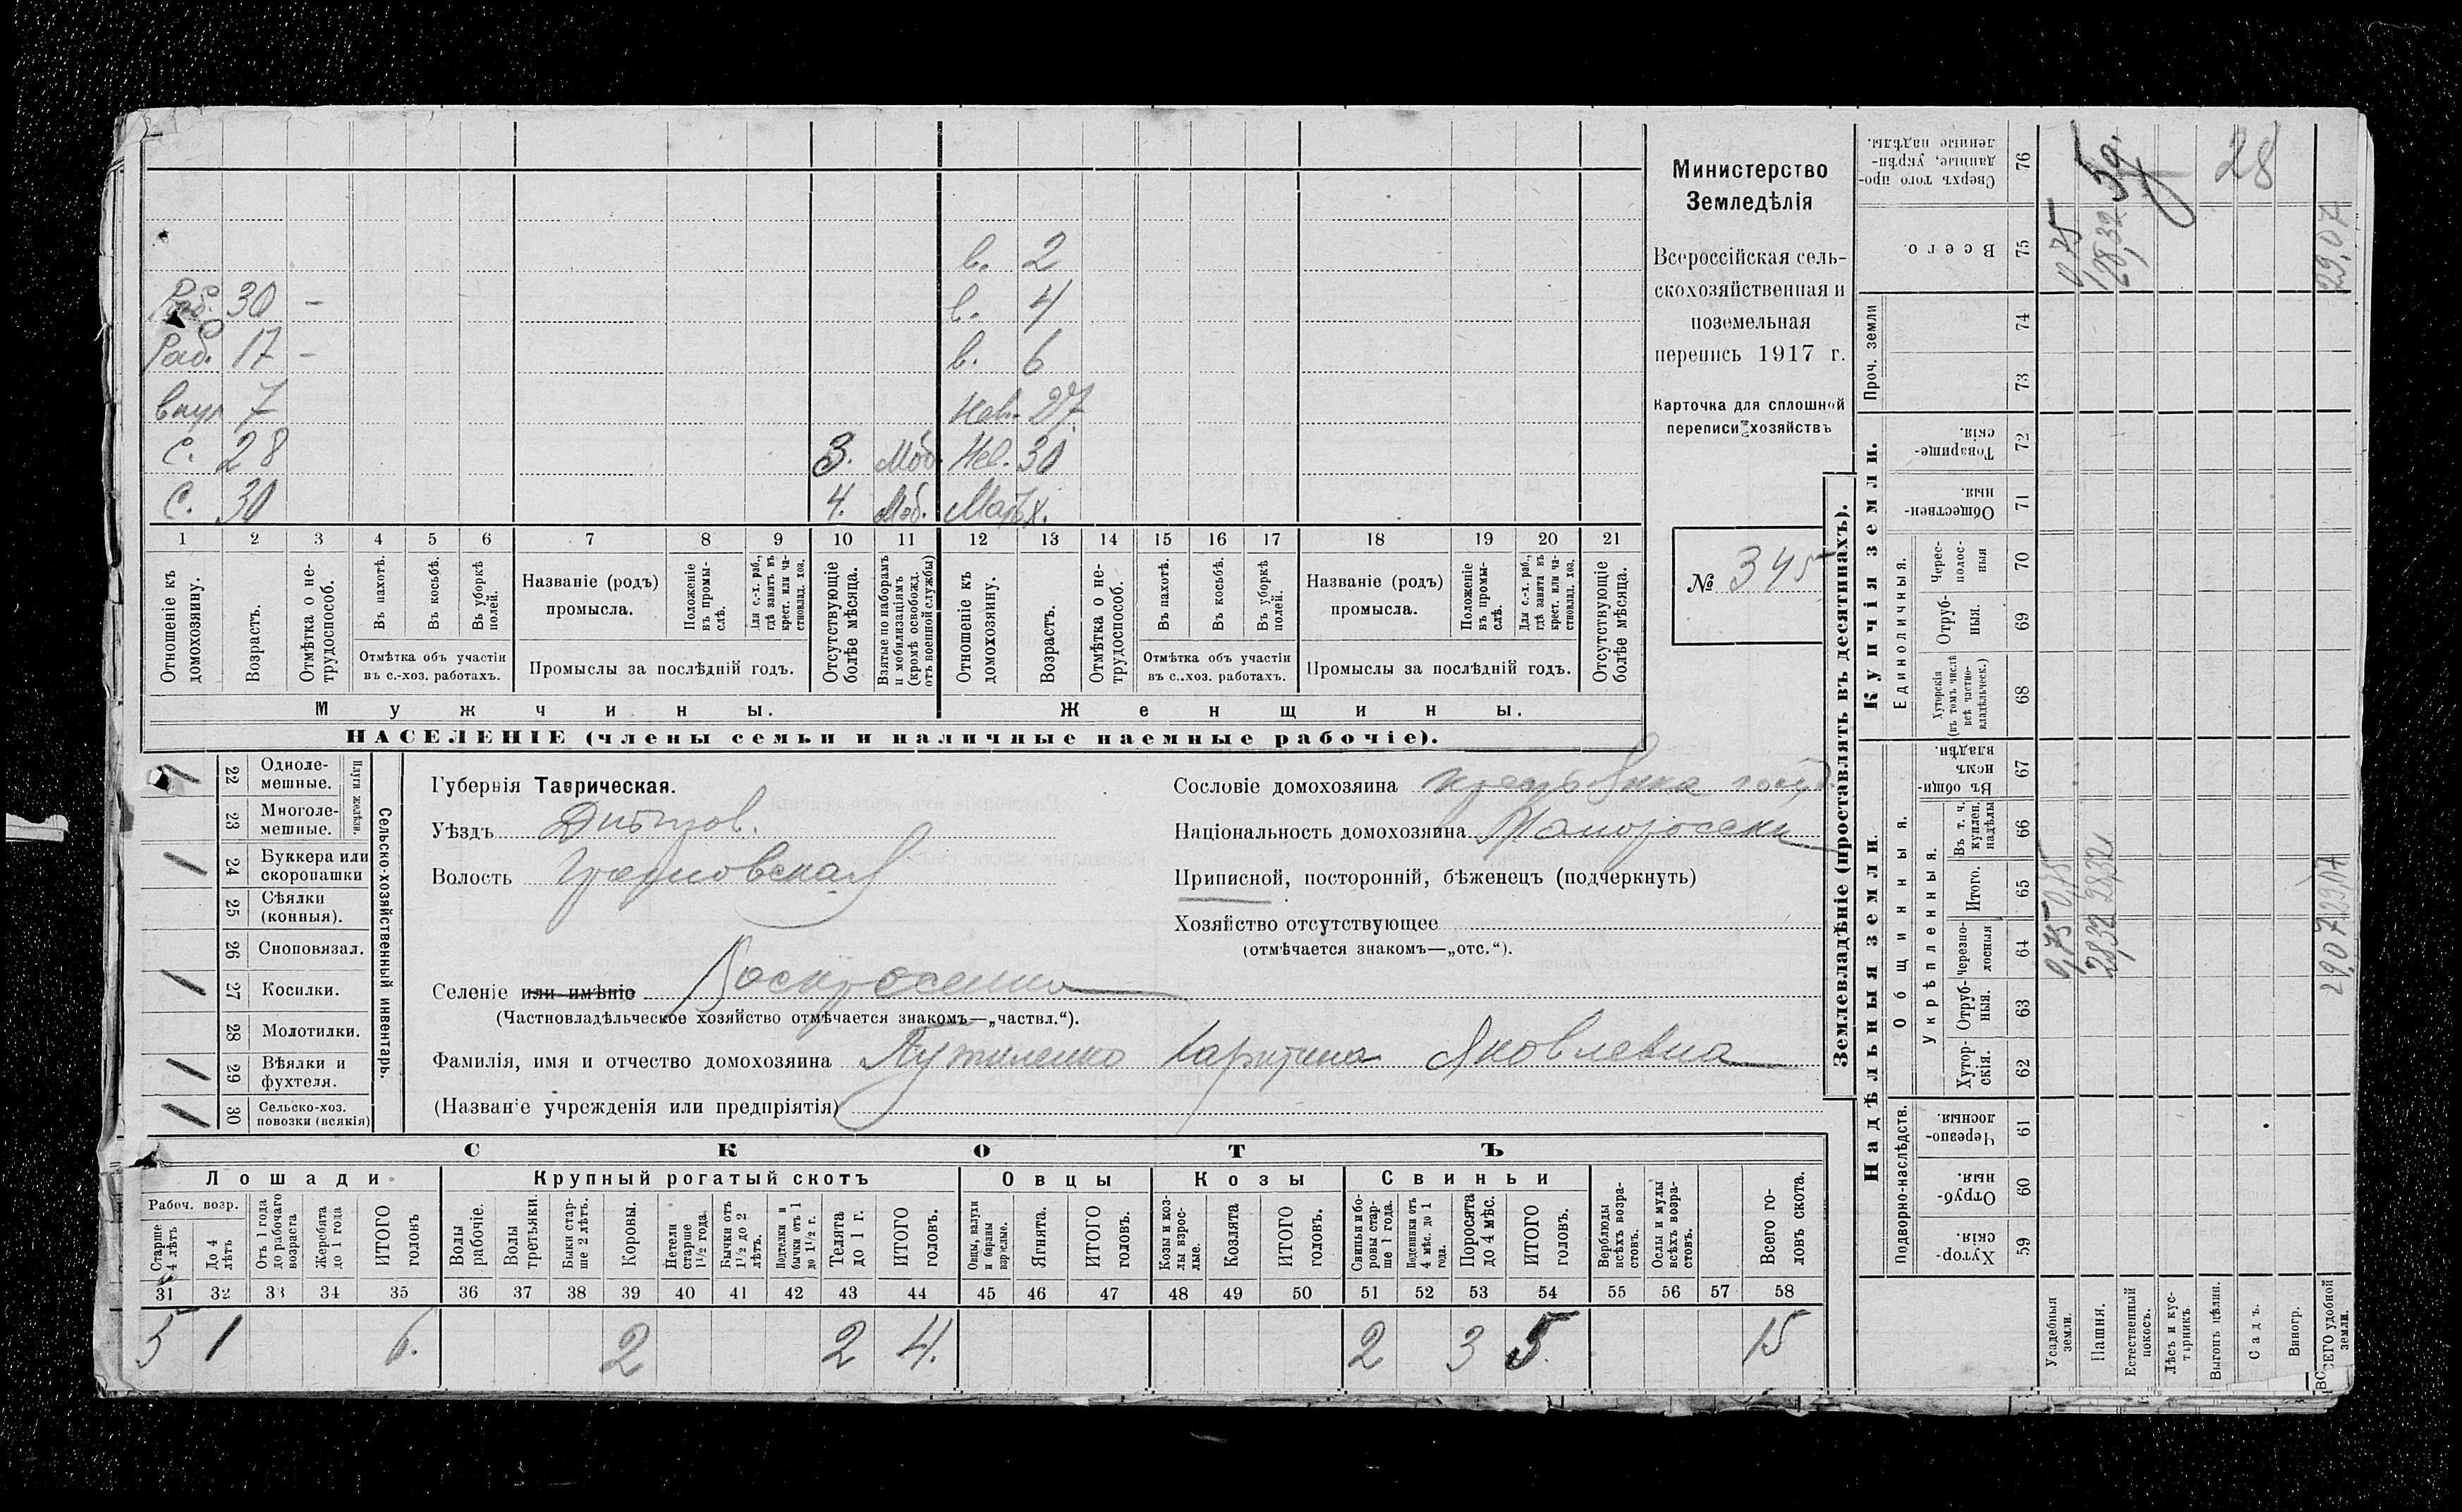 в. 2
Раб. 30 – в. 4
Раб. 17 – в. 6
внук 7 Нев. 27
С. 28 3. Моб. Нев. 30
С. 30 4. Моб.
1 2 3 4 5 6 7 8 9 10 11 12 13 14 15 16 17 18 19 20 21
Отношеніе къ домохозяину.
Возрастъ.
Отмѣтка о не-
трудоспособ.
Въ пахотѣ.
Въ косьбѣ.
Въ уборкѣ полей.
Отмѣтка объ участіи
въ с.-хоз. работахъ.
Названіе (родъ)
промысла.
Положеніе въ промы-
слѣ.
Для с.-х. раб., гдѣ занятъ въ крест. или ча-
стновлад. хоз.
Промыслы за послѣдній годъ.
Отсутствующіе болѣе мѣсяца.
Взятые по наборамъ и мобилизаціямъ (кромѣ освобожд. отъ военной службы)
Отношеніе къ домохозяину.
Возрастъ.
Отмѣтка о не-
трудоспособ.
Въ пахотѣ.
Въ косьбѣ.
Въ уборкѣ полей.
Отмѣтка объ участіи
въ с.-хоз. работахъ.
Названіе (родъ)
промысла.
Положеніе въ промы-
слѣ.
Для с.-х. раб., гдѣ занята въ крест. или ча-
стновлад. хоз.
Промыслы за послѣдній годъ.
Отсутствующіе болѣе мѣсяца.
Мужчины. Женщины.
НАСЕЛЕНІЕ (члены семьи и наличные наемные рабочіе).
Министерство
Земледѣлія
Всероссійская сель-
скохозяйственная и
поземельная
перепись 1917 г.
Карточка для сплошной
переписи хозяйствъ
№ 345
22 Одноле-
мешные.
23 Многоле-
мешные.
Плуги желѣзн.
24 Буккера или
скоропашки
25 Сѣялки
(конныя).
26 Сноповязал.
27 Косилки.
28 Молотилки.
29 Вѣялки и
фухтеля.
30 Сельско-хоз.
повозки (всякія)
Сельско-хозяйственный инвентарь.
Губернія Таврическая.
Уѣздъ Днѣпров.
Волость
Селеніе или имѣніе Воскресенка
(Частновладѣльческое хозяйство отмѣчается знакомъ—„частвл.“).
Фамилія, имя и отчество домохозяина Путиленко Харитина Яковлевна
(Названіе учрежденія или предпріятія)
Сословіе домохозяина
Національность домохозяина
Приписной, посторонній, бѣженецъ (подчеркнуть)
Хозяйство отсутствующее
(отмѣчается знакомъ—„отс.“).
СКОТЪ
Лошади Крупный рогатый скотъ Овцы Козы Свиньи
Рабоч. возр.
Старше 4 лѣтъ
До 4 лѣтъ
Отъ 1 года до рабочаго возраста
Жеребята до 1 года
ИТОГО головъ
Волы рабочіе.
Волы третьяки.
Быки стар-
ше 2 лѣтъ.
Коровы.
Нетели старше 1½ года
Бычки отъ 1½ до 2 лѣтъ.
Подтелки и бычки отъ 1 до 1½ г.
Телята до 1 г.
ИТОГО головъ.
Овцы, валухи и бараны взрослые.
Ягнята.
ИТОГО головъ.
Козы и коз-
лы взрос-
лые.
Козлята
ИТОГО головъ.
Свиньи и бо-
ровы стар-
ше 1 года.
Подсвинки отъ 4 мѣс. до 1 года.
Поросята до 4 мѣс.
ИТОГО головъ.
Верблюды всѣхъ возра-
стовъ.
Ослы и мулы всѣхъ возра-
стовъ.
Всего го-
ловъ скота.
31 32 33 34 35 36 37 38 39 40 41 42 43 44 45 46 47 48 49 50 51 52 53 54 55 56 57 58
5 1 6. 2 2 4. 2 3 5. 15
Землевладѣніе (проставлять въ десятинахъ).
Купчія земли.
Надѣльныя земли.
Сверхъ того про-
данные, укрѣп-
ленные надѣлы. 76
Всего. 75
Проч. земли 74 73
Товарище-
скія. 72
Обществен-
ныя. 71
Единоличныя.
Черес-
полос-
ныя 70
Отруб-
ныя. 69
Хуторскія
(въ томъ числѣ
всѣ частно-
владѣльческ.) 68
Въ общин-
номъ
владѣн. 67
Общинныя.
Укрѣпленныя.
Въ т. ч.
куплен.
надѣлы 66
Итого. 65
Черезпо-
лосныя 64
Отруб-
ныя. 63
Хутор-
скія. 62
Подворно-наслѣдств.
Черезпо-
лосныя. 61
Отруб-
ныя. 60
Хутор-
скія. 59
Усадебныя земли. 0,75 0,75 0,75
Пашня. 28,32 28,32 28,32
Естественный покосъ.
Лѣсъ и кус-
тарникъ.
Выгонъ цѣлин.
Садъ.
Виногр.
ВСЕГО удобной земли. 29,07 29,07 29,07
28